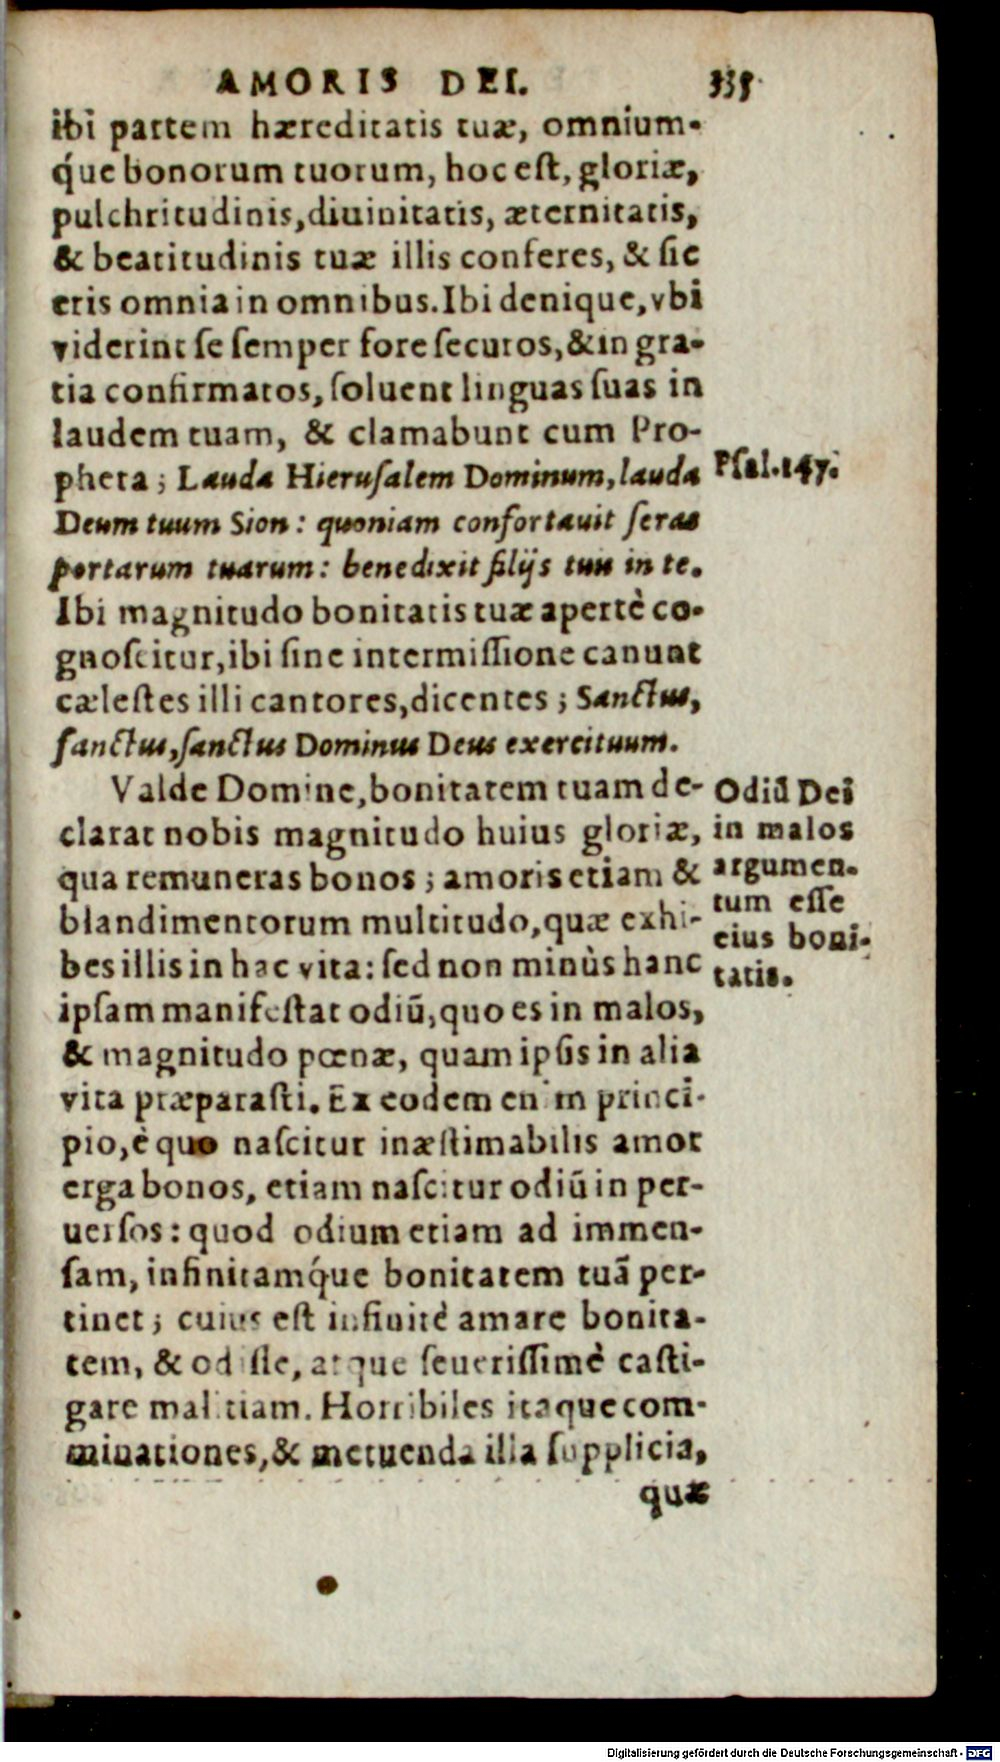 AMORIS DEI. 335
ibi partem hæreditatis tuæ, omnium-
q́ue bonorum tuorum, hoc est, gloriæ,
pulchritudinis, diuinitatis, æternitatis,
& beatitudinis tuæ illis conferes, & sic
eris omnia in omnibus. Ibi denique, vbi
viderint se semper fore securos, & in gra-
tia confirmatos, soluent linguas suas in
laudem tuam, & clamabunt cum Pro-
pheta; Lauda Hierusalem Dominum, lauda
Deum tuum Sion: quoniam confortauit seras
portarum tuarum: benedixit filijs tuis in te.
Ibi magnitudo bonitatis tuæ apertè co-
gnoscitur, ibi sine intermissione canunt
cælestes illi cantores, dicentes; Sanctus,
sanctus, sanctus Dominus Deus exercituum.
Psal. 147.
Valde Domine, bonitatem tuam de-
clarat nobis magnitudo huius gloriæ,
qua remuneras bonos; amoris etiam &
blandimentorum multitudo, quæ exhi-
bes illis in hac vita: sed non minùs hanc
ipsam manifestat odiū, quo es in malos,
& magnitudo pœnæ, quam ipsis in alia
vita præparasti. Ex eodem enim princi-
pio, è quo nascitur inæstimabilis amor
erga bonos, etiam nascitur odiū in per-
uersos: quod odium etiam ad immen-
sam, infinitamq́ue bonitatem tuā per-
tinet; cuius est infinitè amare bonita-
tem, & odisse, atque seuerissimè casti-
gare malitiam. Horribiles itaque com-
minationes, & metuenda illa supplicia,
quæ
Odiū Dei
in malos
argumen-
tum esse
eius boni-
tatis.
Digitalisierung gefördert durch die Deutsche Forschungsgemeinschaft - DFG